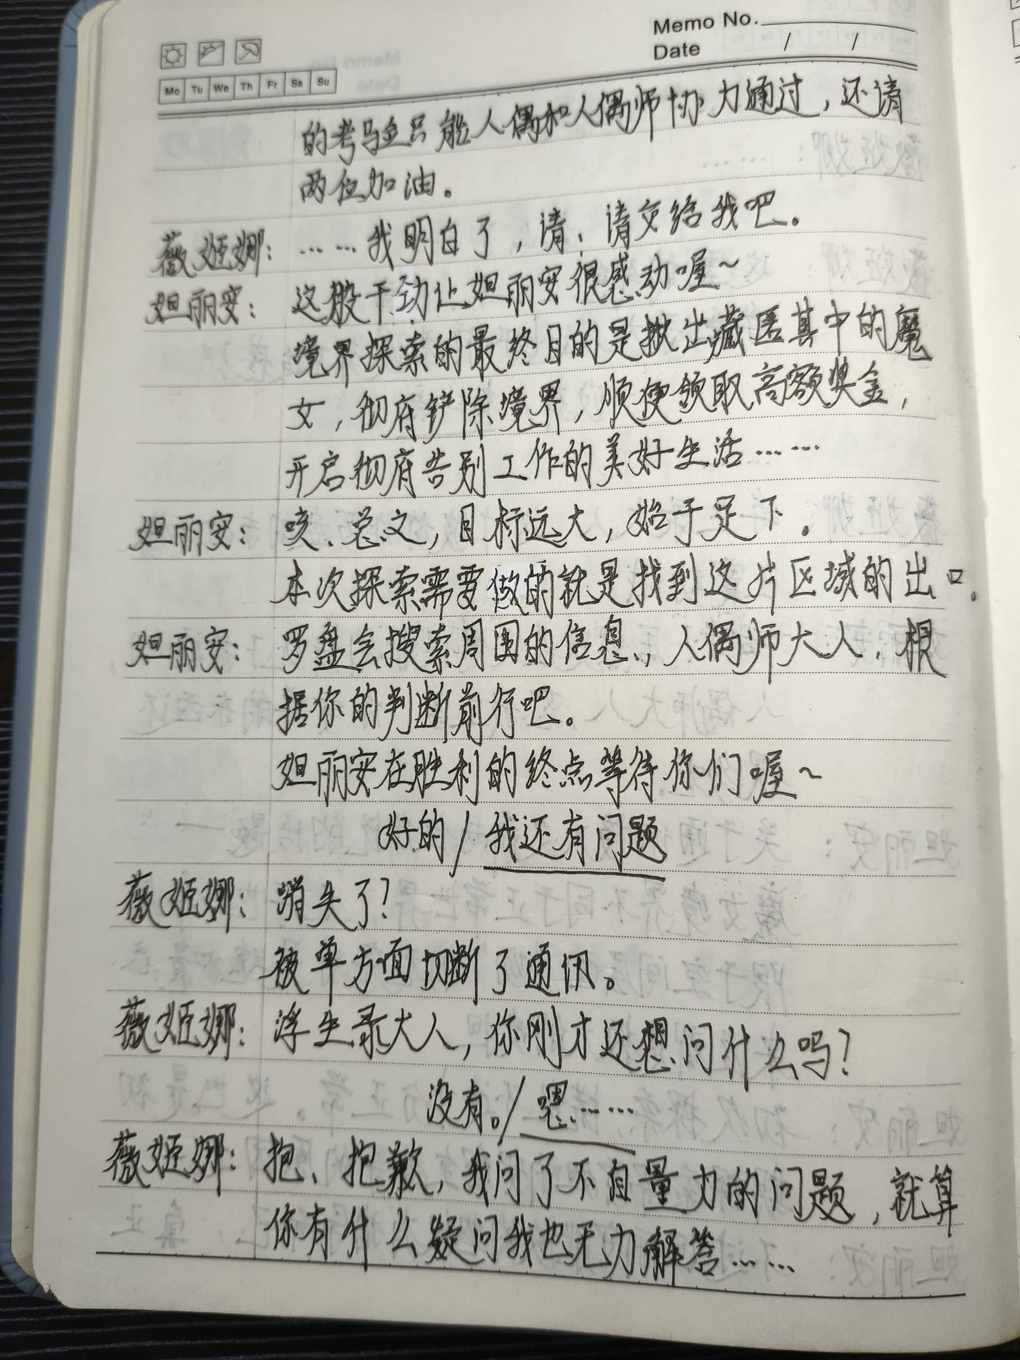 Memo No.
Date / /
Mo Tu We Th Fr Sa Su
的考验只能人偶和人偶师协力通过，还请
两位加油。
薇姬娜：……我明白了，请、请交给我吧。
妲丽安：这股干劲让妲丽安很感动喔~
境界探索的最终目的是揪出藏匿其中的魔
女，彻府铲除境界，顺便领取高额奖金，
开启彻府告别工作的美好生活……
妲丽安：咳、总之，目标远大，始于足下。
本次探索需要做的就是找到这片区域的出口。
妲丽安：罗盘会搜索周围的信息，人偶师大人，根
据你的判断前行吧。
妲丽安在胜利的终点等待你们喔~
好的/我还有问题
薇姬娜：消失了？
被单方面切断了通讯。
薇姬娜：浮生录大人，你刚才还想问什么吗？
没有。/嗯……
薇姬娜：抱、抱歉，我问了不自量力的问题，就算
你有什么疑问我也无力解答……